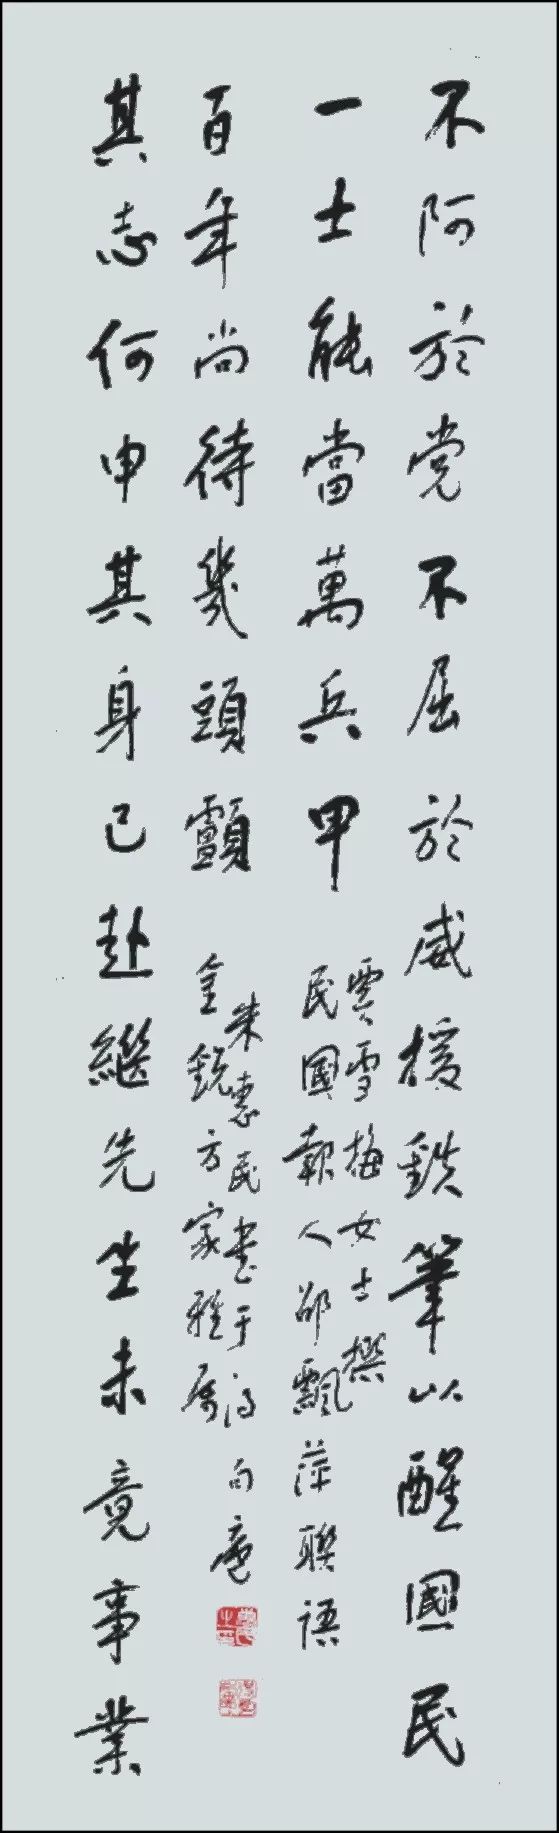 不阿於党不屈於威援鉄筆以醒國民
一士能當萬兵甲
雪梅女士撰
民國報人邵飄萍聯語
百年尚待幾頭顱
朱惠民書于庵
金銳方家雅属
其志何申其身已赴繼先生未竟事業